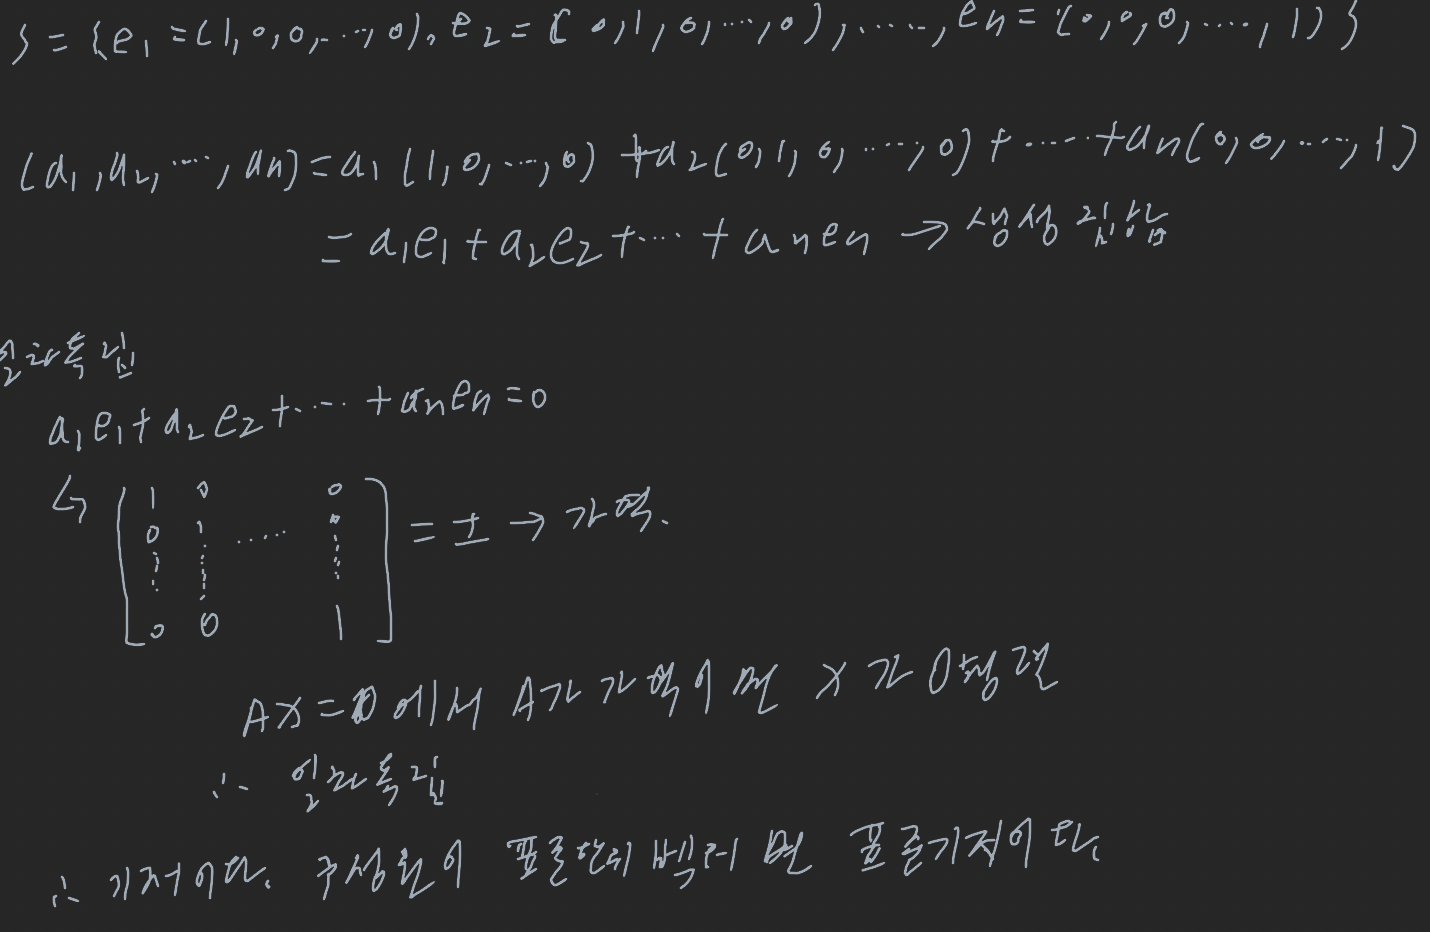 S = {e₁ = (1, 0, 0, ...., 0), e₂ = (0, 1, 0, ...., 0), ....., eₙ = (0, 0, 0, ....., 1)}
(a₁, a₂, ....., aₙ) = a₁(1, 0, ...., 0) + a₂(0, 1, 0, ....., 0) + ..... + aₙ(0, 0, ....., 1)
= a₁e₁ + a₂e₂ + .... + aₙeₙ → 생성 집합
일차독립
a₁e₁ + a₂e₂ + ..... + aₙeₙ = 0
↳ [1 0 0
0 1 ..... 0
⋮ ⋮ ⋮
0 0 1] = I → 가역.
AX = 0 에서 A가 가역이면 X가 0행렬
∴ 일차독립
∴ 기저이다. 구성원이 표준단위 벡터 면 표준기저이다.